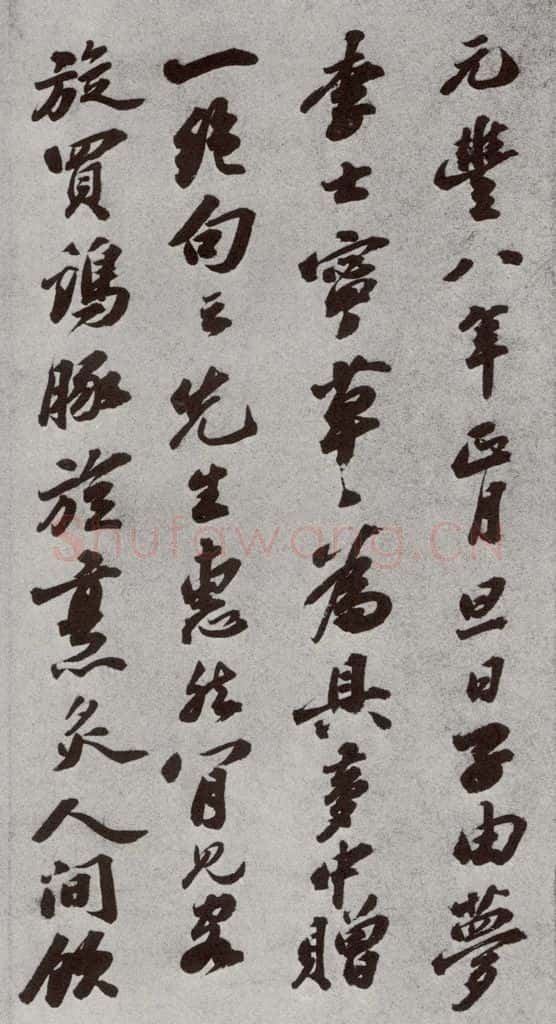 元豐八年正月旦日子由夢
李士寧草〻為具夢中贈
一絕句云先生惠然肯見客
旋買鷄豚旋烹炙人間飲
Shufawang.CN